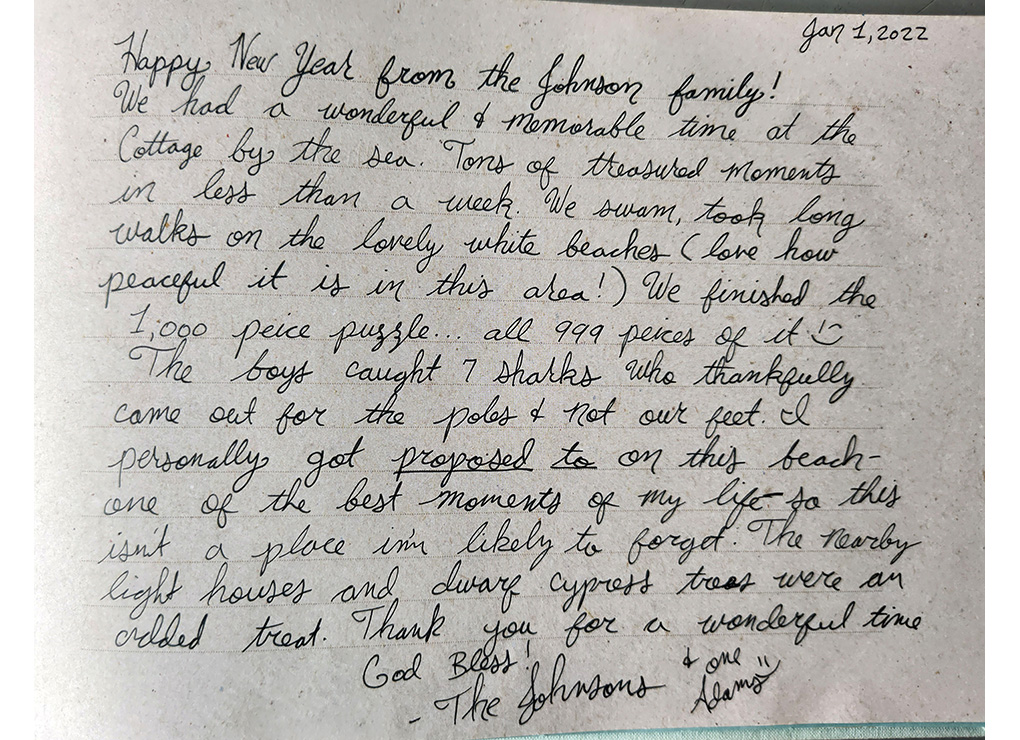 Jan 1, 2022
Happy New Year from the Johnson family!
We had a wonderful & memorable time at the
Cottage by the sea. Tons of treasured moments
in less than a week. We swam, took long
walks on the lovely white beaches (love how
peaceful it is in this area!) We finished the
1,000 peice puzzle... all 999 peices of it :)
The boys caught 7 sharks who thankfully
came out for the poles & not our feet. I
personally got proposed to on this beach-
one of the best moments of my life - so this
isn't a place i'm likely to forget. The nearby
light houses and dwarf cypress trees were an
added treat. Thank you for a wonderful time
God Bless!
- The Johnsons & one
Adams :)